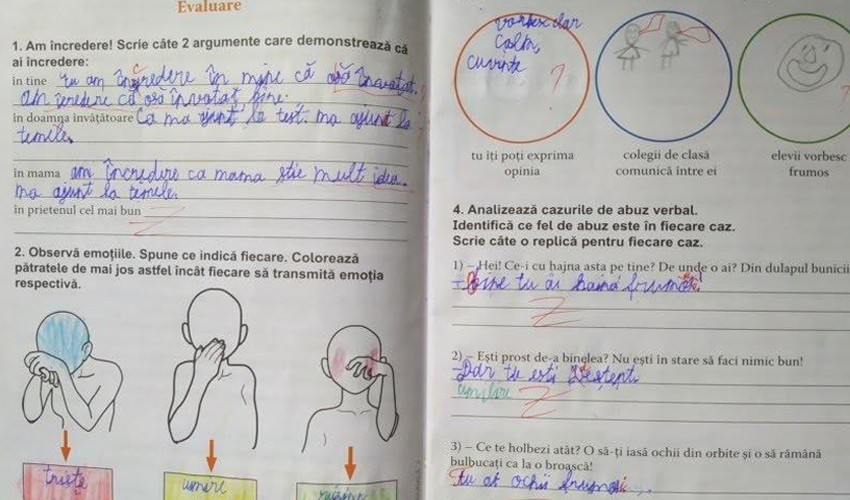 Evaluare
1. Am încredere! Scrie câte 2 argumente care demonstrează că
ai încredere:
în tine eu am încredere în mine că o să învatat.
am încredere că o să învatat bine.
în doamna învățătoare Ca ma ajunt, la test. ma ajunt la
temele.
în mama am încredere ca mama stie mult idea.
ma ajunt la temele.
în prietenul cel mai bun
2. Observă emoțiile. Spune ce indică fiecare. Colorează
pătratele de mai jos astfel încât fiecare să transmită emoția
respectivă.
triste
uimire
vorbesc clar
Calm,
cuvinte
?
?
tu îți poți exprima
opinia
colegii de clasă
comunică între ei
elevii vorbesc
frumos
4. Analizează cazurile de abuz verbal.
Identifică ce fel de abuz este în fiecare caz.
Scrie câte o replică pentru fiecare caz.
1) – Hei! Ce-i cu hajna asta pe tine? De unde o ai? Din dulapul bunicii
tu ai haină frumos.
2) – Ești prost de-a binelea? Nu ești în stare să faci nimic bun!
– Dar tu esti Destept.
umilire
3) – Ce te holbezi atât? O să-ți iasă ochii din orbite și o să rămână
bulbucați ca la o broască!
tu ai ochii frumosi.